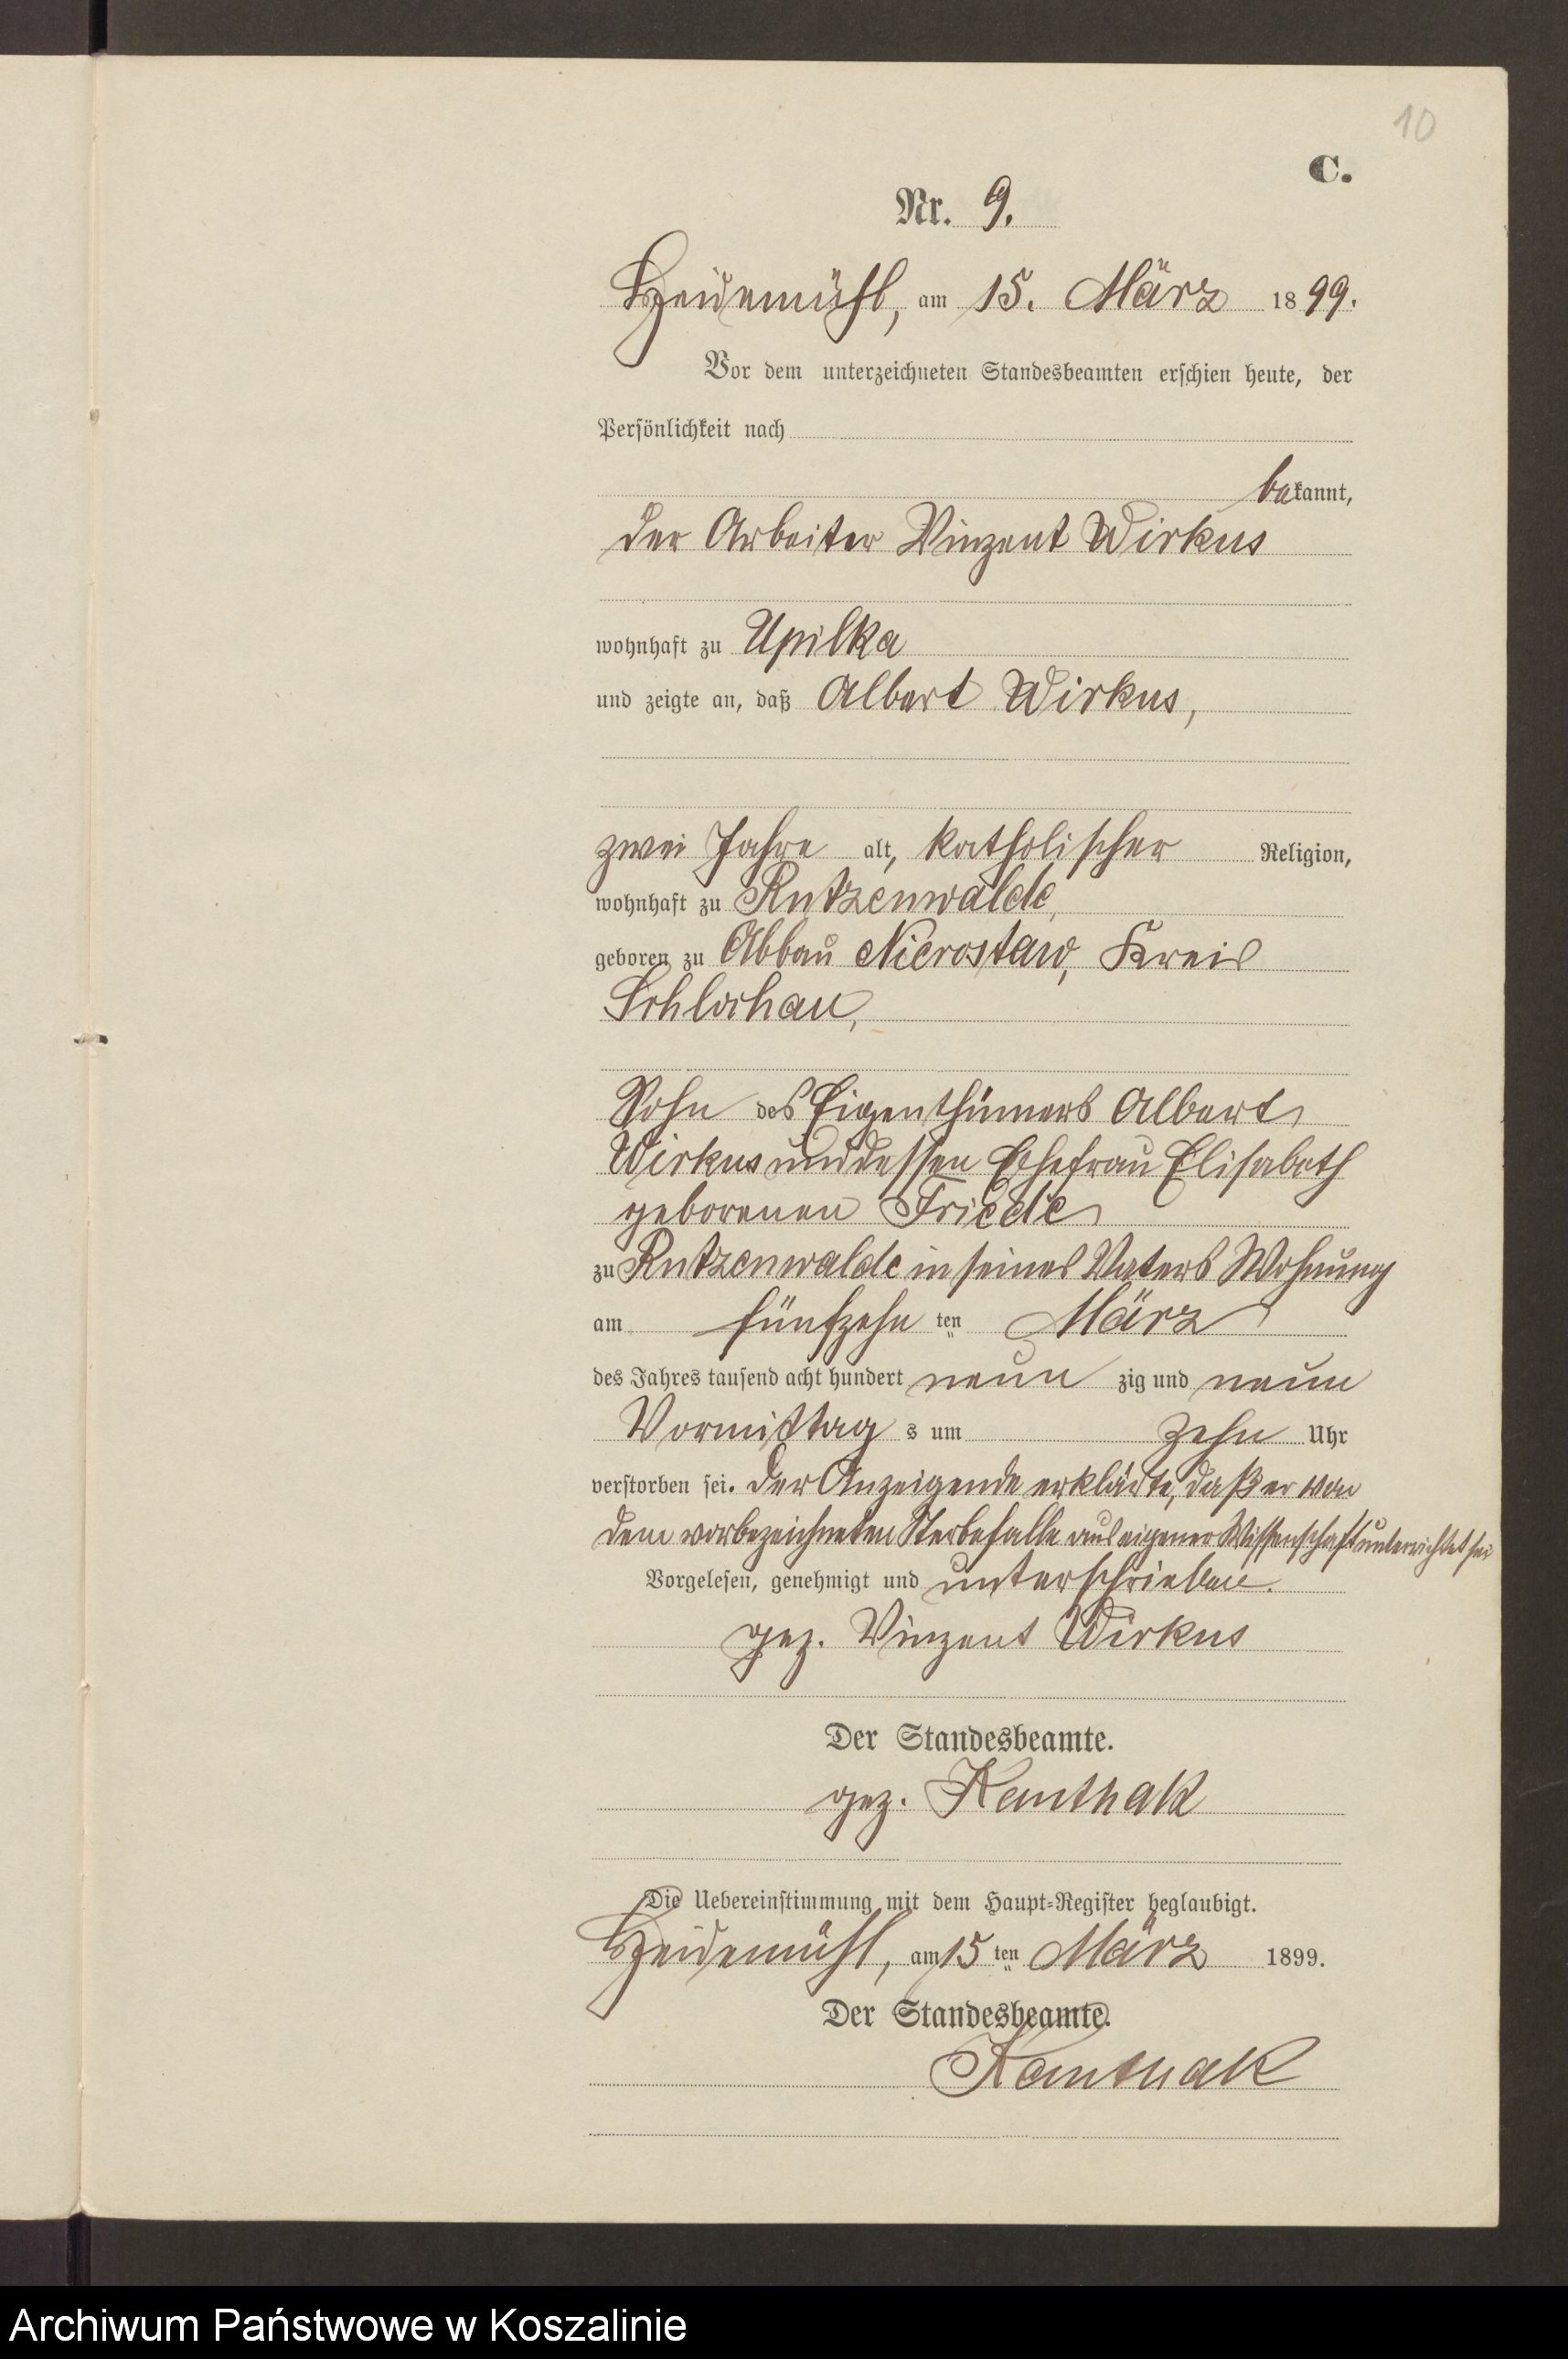 10
C.
Nr. 9.
Heidemühl, am 15. März 1899.
Vor dem unterzeichneten Standesbeamten erschien heute, der
Persönlichkeit nach
bekannt,
der Arbeiter Vinzent Wirkus
wohnhaft zu Upilka
und zeigte an, daß Albert Wirkus,
zwei Jahre alt, katholischer Religion,
wohnhaft zu Rutzenwalde,
geboren zu Abbau Nierostaw, Kreis
Schlochau,
Sohn des Eigenthümers Albert
Wirkus und dessen Ehefrau Elisabeth
geborenen Friede
zu Rutzenwalde in seines Vaters Wohnung
am fünfzehn ten März
des Jahres tausend acht hundert neun zig und neun
Vormittag s um zehn Uhr
verstorben sei. Der Anzeigende erklärte, daß er von
dem vorbezeichneten Sterbefalle aus eigener Wissenschaft unterrichtet sei
Vorgelesen, genehmigt und unterschrieben.
gez. Vinzent Wirkus
Der Standesbeamte.
gez. Kanthak
Die Uebereinstimmung mit dem Haupt-Register beglaubigt.
Heidemühl, am 15 ten März 1899.
Der Standesbeamte.
Kanthak
Archiwum Państwowe w Koszalinie